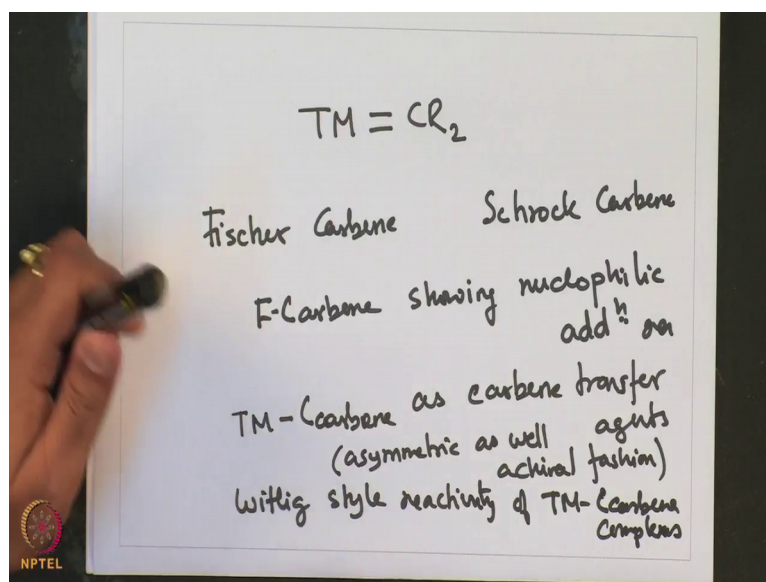 TM = CR2
Fischer Carbene Schrock Carbene
F-Carbene showing nuclophilic
addn
TM-Ccarbene as carbene transfer
agents
(asymmetric as well
achiral fashion)
Wittig style reactivity of TM-Ccarbene
complexes
NPTEL